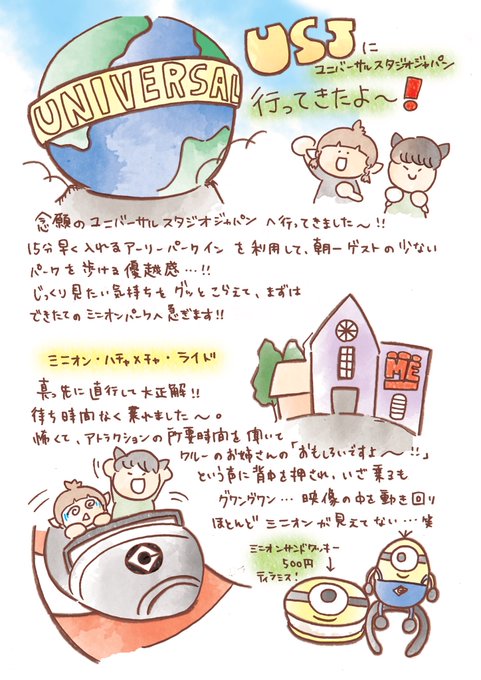 UNIVERSAL
USJに
ユニバーサルスタジオジャパン
行ってきたよ〜!
念願のユニバーサルスタジオジャパンへ行ってきました〜!!
15分早く入れるアーリーパークインを利用して、朝一ゲストの少ない
パークを歩ける優越感…!!
じっくり見たい気持ちをグッとこらえて、まずは
できたてのミニオンパークへ急ぎます!!
ミニオン・ハチャメチャ・ライド
真っ先に直行して大正解!!
待ち時間なく乗れました〜。
怖くて、アトラクションの所要時間を聞いて
クルーのお姉さんの「おもしろいですよ〜!!」
という声に背中を押され、いざ乗るも
グワングワン…映像の中を動き回り
ほとんどミニオンが見えてない…笑
ME
ミニオンサンドクッキー
500円
ティラミス!